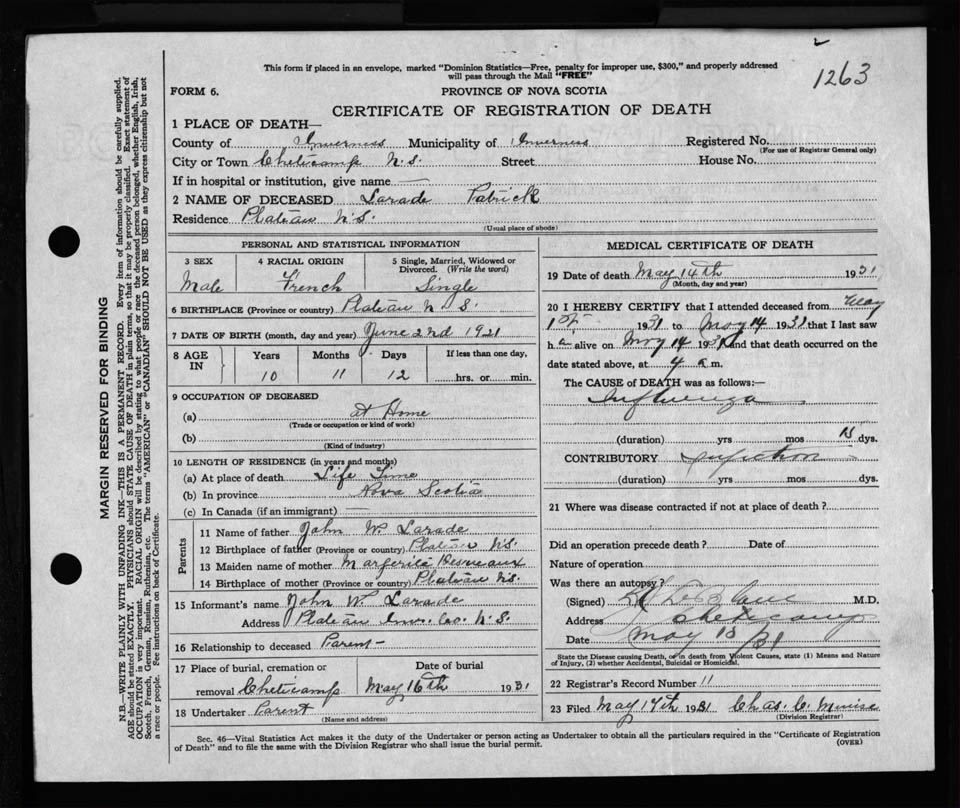 1263
This form if placed in an envelope, marked "Dominion Statistics—Free, penalty for improper use, $300," and properly addressed
will pass through the Mail "FREE"
FORM 6.
PROVINCE OF NOVA SCOTIA
CERTIFICATE OF REGISTRATION OF DEATH
1 PLACE OF DEATH—
County of Inverness Municipality of Inverness Registered No.
(For use of Registrar General only)
City or Town Cheticamp N.S. Street House No.
If in hospital or institution, give name —
2 NAME OF DECEASED Larade Patrick
Residence Plateau N.S.
(Usual place of abode)
PERSONAL AND STATISTICAL INFORMATION
3 SEX 4 RACIAL ORIGIN 5 Single, Married, Widowed or
Divorced. (Write the word)
Male French Single
6 BIRTHPLACE (Province or country) Plateau N S.
7 DATE OF BIRTH (month, day and year) June 2nd 1921
8 AGE IN Years Months Days If less than one day,
10 11 12 hrs. or min.
9 OCCUPATION OF DECEASED
(a) at Home
(Trade or occupation or kind of work)
(b)
(Kind of industry)
10 LENGTH OF RESIDENCE (in years and months)
(a) At place of death Life Time
(b) In province Nova Scotia
(c) In Canada (if an immigrant) —
Parents
11 Name of father John W. Larade
12 Birthplace of father (Province or country) Plateau N.S.
13 Maiden name of mother Margerite Desveaux
14 Birthplace of mother (Province or country) Plateau N.S.
15 Informant's name John W. Larade
Address Plateau Inv. Co. N.S.
16 Relationship to deceased Parent
17 Place of burial, cremation or Date of burial
removal Cheticamp May 16th 1931
18 Undertaker Parent
(Name and address)
MEDICAL CERTIFICATE OF DEATH
19 Date of death May 14th 1931
(Month, day and year)
20 I HEREBY CERTIFY that I attended deceased from May
1st 1931 to May 14 1931 that I last saw
h alive on May 14 1931 and that death occurred on the
date stated above, at 4 a m.
The CAUSE of DEATH was as follows:—
Influenza
(duration) yrs mos dys.
CONTRIBUTORY
(duration) yrs mos dys.
21 Where was disease contracted if not at place of death?
Did an operation precede death? Date of
Nature of operation
Was there an autopsy?
(Signed) M.D.
Address Cheticamp
Date May 31
State the Disease causing Death, or, in death from Violent Causes, state (1) Means and Nature
of Injury, (2) whether Accidental, Suicidal or Homicidal.
22 Registrar's Record Number 11
23 Filed May 17th 1931 Chas. C.
(Division Registrar)
Sec. 46—Vital Statistics Act makes it the duty of the Undertaker or person acting as Undertaker to obtain all the particulars required in the "Certificate of Registration
of Death" and to file the same with the Division Registrar who shall issue the burial permit.
(OVER)
MARGIN RESERVED FOR BINDING
N.B.—WRITE PLAINLY WITH UNFADING INK—THIS IS A PERMANENT RECORD. Every item of information should be carefully supplied.
AGE should be stated EXACTLY. PHYSICIANS should STATE CAUSE OF DEATH in plain terms, so that it may be properly classified. Exact statement of
OCCUPATION is very important. RACIAL ORIGIN will be described by stating to what people or race the deceased person belonged, whether English, Irish,
Scotch, French, German, Russian, Ruthenian, etc. The terms "AMERICAN" or "CANADIAN" SHOULD NOT BE USED as they express citizenship but not
a race or people. See instructions on back of Certificate.